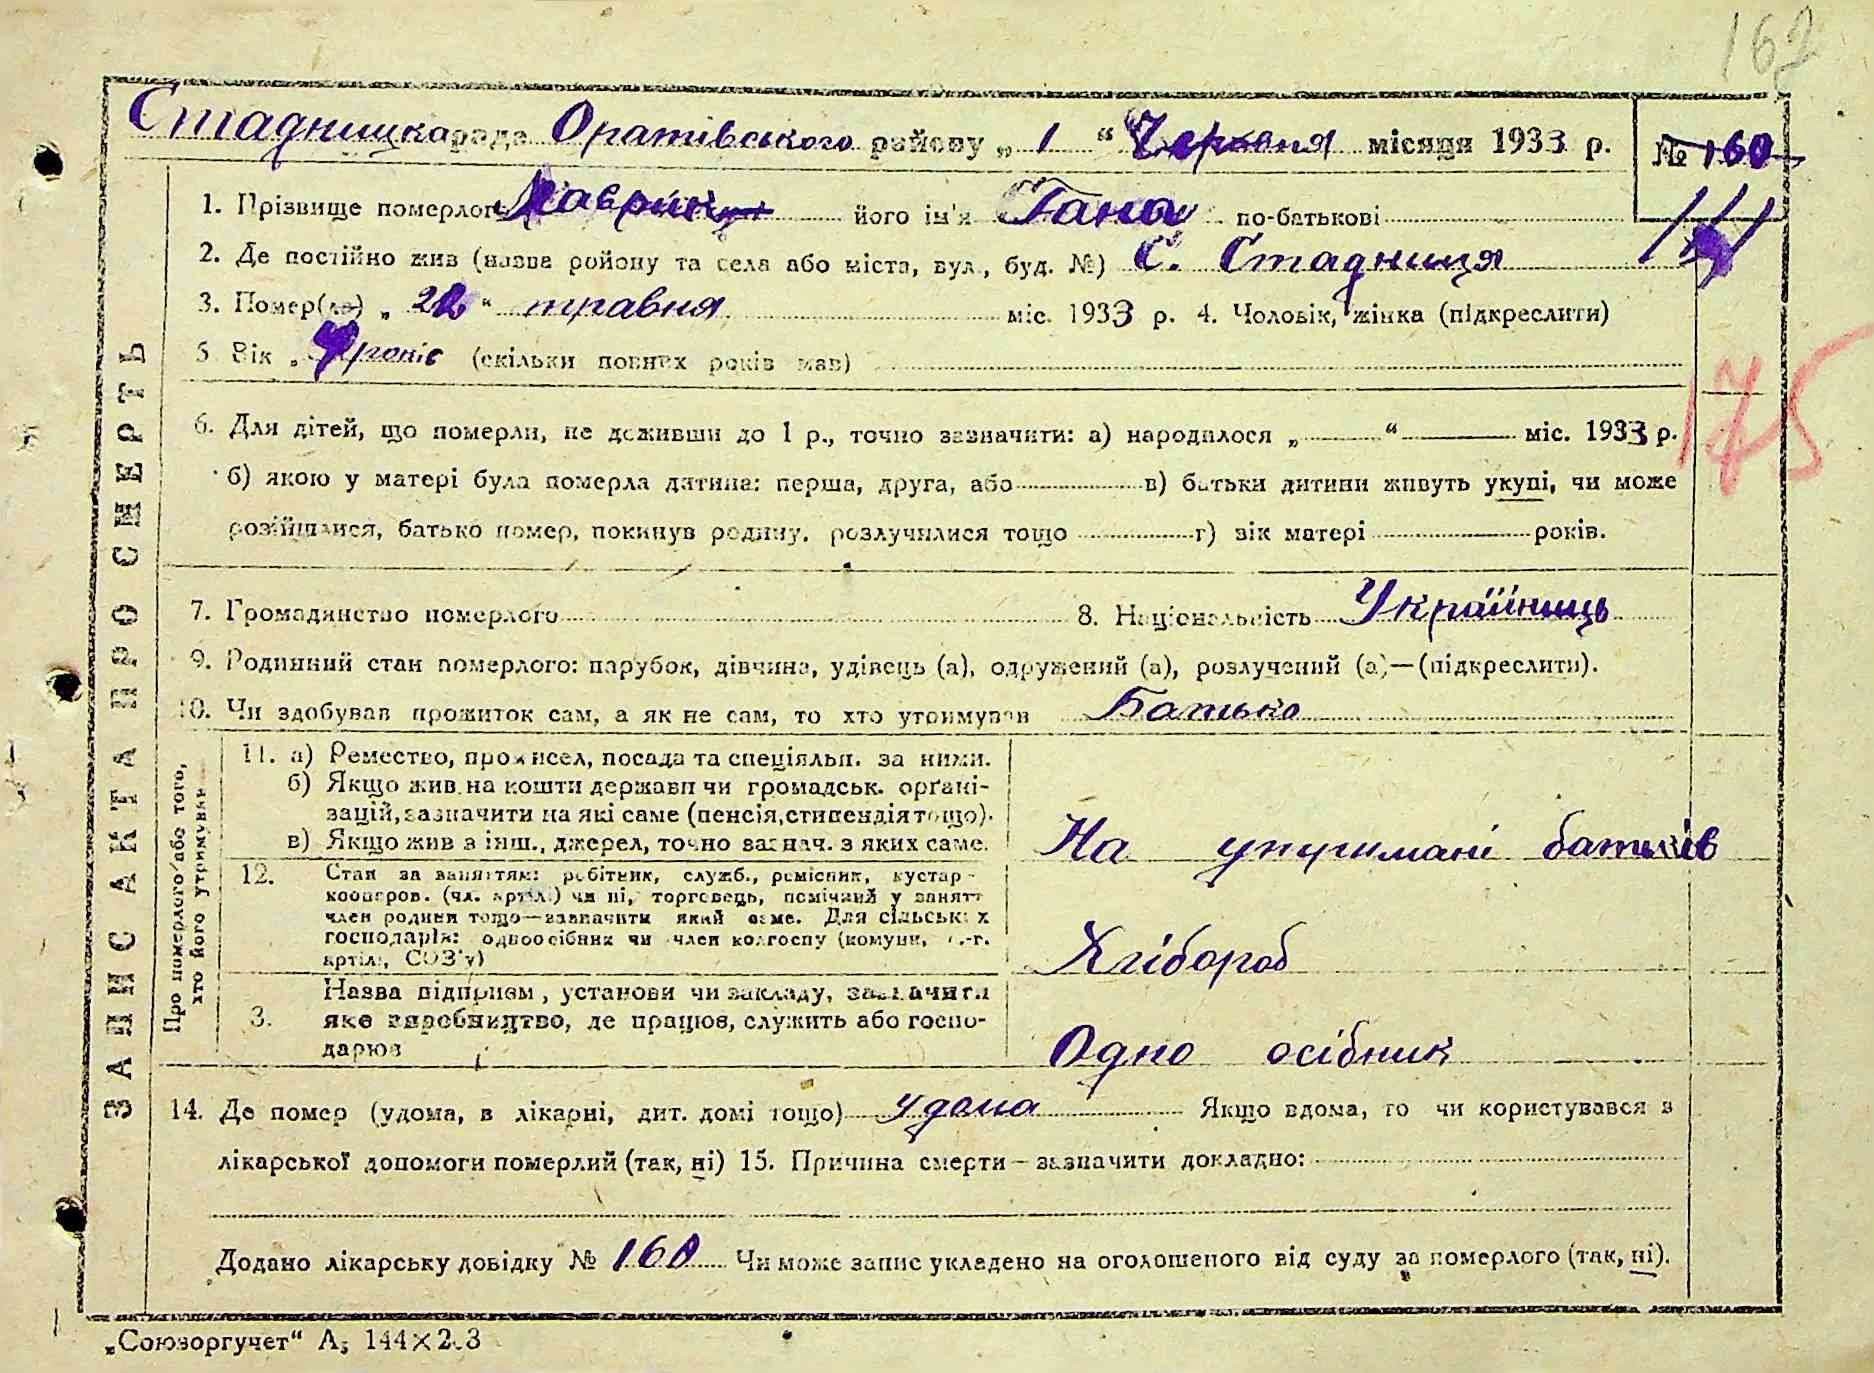 162
Стадницка рада Оратівського району „ 1 “ Червня місяця 1933 р.
№ 160
1. Прізвище померлого його ім'я Гана по-батькові
2. Де постійно жив (назва району та села або міста, вул., буд. №) С. Стадниця
3. Помер(ла) „ 22 “ травня міс. 1933 р. 4. Чоловік, жінка (підкреслити)
5 Вік „ років (скільки повних років мав)
175
6. Для дітей, що померли, не доживши до 1 р., точно зазначити: а) народилося „ “ міс. 1933 р.
б) якою у матері була померла дитина: перша, друга, або в) батьки дитини живуть укупі, чи може
розійшлися, батько помер, покинув родину, розлучилися тощо г) вік матері років.
7. Громадянство померлого 8. Національність Українець
9. Родинний стан померлого: парубок, дівчина, удівець (а), одружений (а), розлучений (а)—(підкреслити).
10. Чи здобував прожиток сам, а як не сам, то хто утримував Батько
ЗАПИС АКТА ПРО СМЕРТЬ
Про померлого або того,
хто його утримував
11. а) Ремество, промисел, посада та спеціяльн. за ними.
б) Якщо жив на кошти держави чи громадськ. орґані-
зацій, зазначити на які саме (пенсія, стипендія тощо).
в) Якщо жив з інш., джерел, точно зазнач. з яких саме.
На упуримані батьків
12. Стан за заняттям: робітник, служб., ремісник, кустар-
кооперов. (чл. артіл.) чи ні, торговець, помічний у занятт
член родини тощо—зазначити який саме. Для сільськ х
господарів: одноосібник чи член колгоспу (комуни, с.-г.
артілі, СОЗ'у)
Хлібороб
3. Назва підприєм, установи чи закладу, зазначити
яке виробництво, де працює, служить або госпо-
дарює
Одно осібник
14. Де помер (удома, в лікарні, дит. домі тощо) удома Якщо вдома, то чи користувався з
лікарської допомоги померлий (так, ні) 15. Причина смерти—зазначити докладно:
Додано лікарську довідку № 160 Чи може запис укладено на оголошеного від суду за померлого (так, ні).
„Союзоргучет“ А₅ 144×203